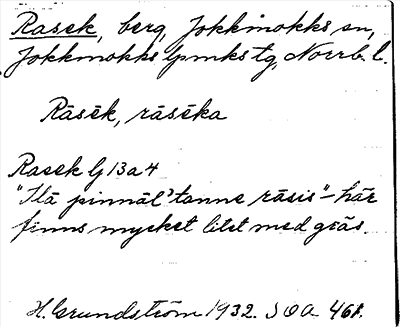 Rasek, berg, Jokkmokks sn,
Jokkmokks lpmks tg, Norrb. l.
Råsēk, råsēka
Rasek G 13 a 4
"Ilā pinnāl'tanne rāsis" - här
finns mycket litet med gräs.
H. Grundström 1932. SOA 461.